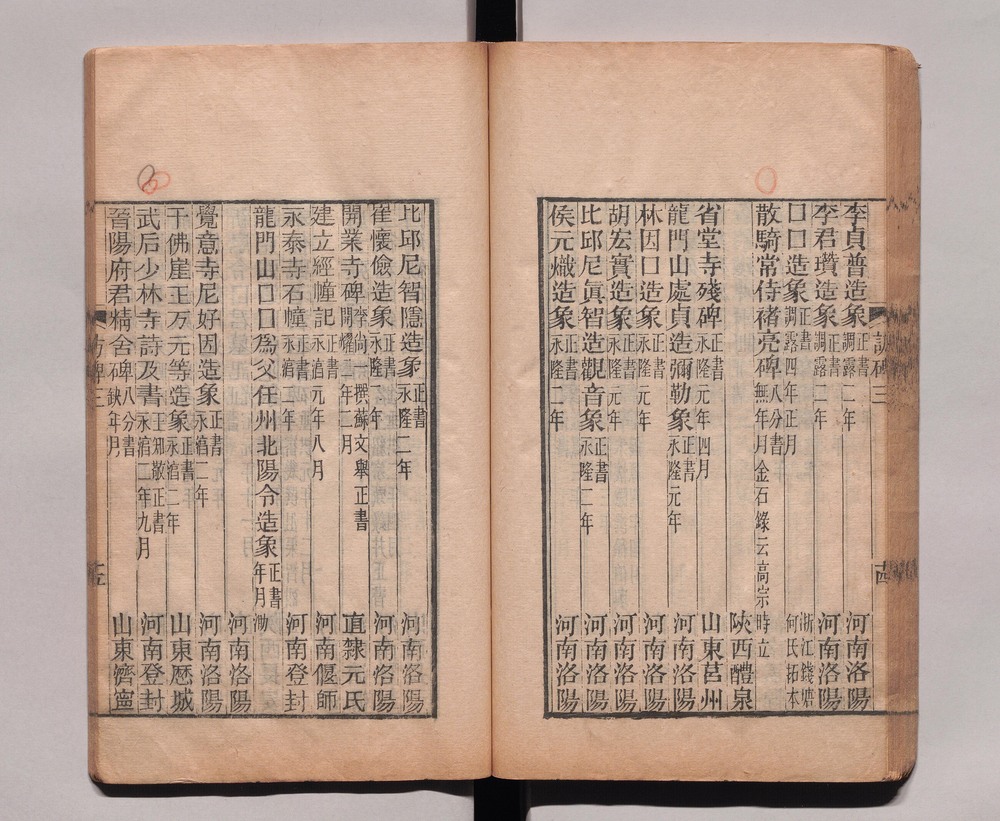 李貞普造象 正書 調露二年 河南洛陽
李君瓚造象 正書 調露二年 河南洛陽
口口造象 正書 調露四年正月 浙江錢塘何氏拓本
散騎常侍褚亮碑 八分書 無年月金石錄云高宗時立
陝西醴泉
省堂寺殘碑 正書 永隆元年四月 山東莒州
龍門山處貞造彌勒象 正書 永隆元年 河南洛陽
林因口造象 正書 永隆元年 河南洛陽
胡宏實造象 正書 永隆元年 河南洛陽
比邱尼眞智造觀音象 正書 永隆二年 河南洛陽
侯元熾造象 正書 永隆二年 河南洛陽
訪碑三
十四
比邱尼智隱造象 正書 永隆二年 河南洛陽
崔懷儉造象 正書 永隆二年 河南洛陽
開業寺碑 李尚一撰蘇文舉正書 開耀二年二月 直隸元氏
建立經幢記 正書 永湻元年八月 河南偃師
永泰寺石幢 正書 永湻二年 河南登封
龍門山口口爲父任州北陽令造象 正書 年月泐
河南洛陽
覺意寺尼好因造象 正書 永湻二年 河南洛陽
千佛崖王万元等造象 正書 永湻二年 山東歷城
武后少林寺詩及書 王知敬正書 永湻二年九月 河南登封
晉陽府君精舍碑 八分書 缺年月 山東濟寧
訪碑三
十五